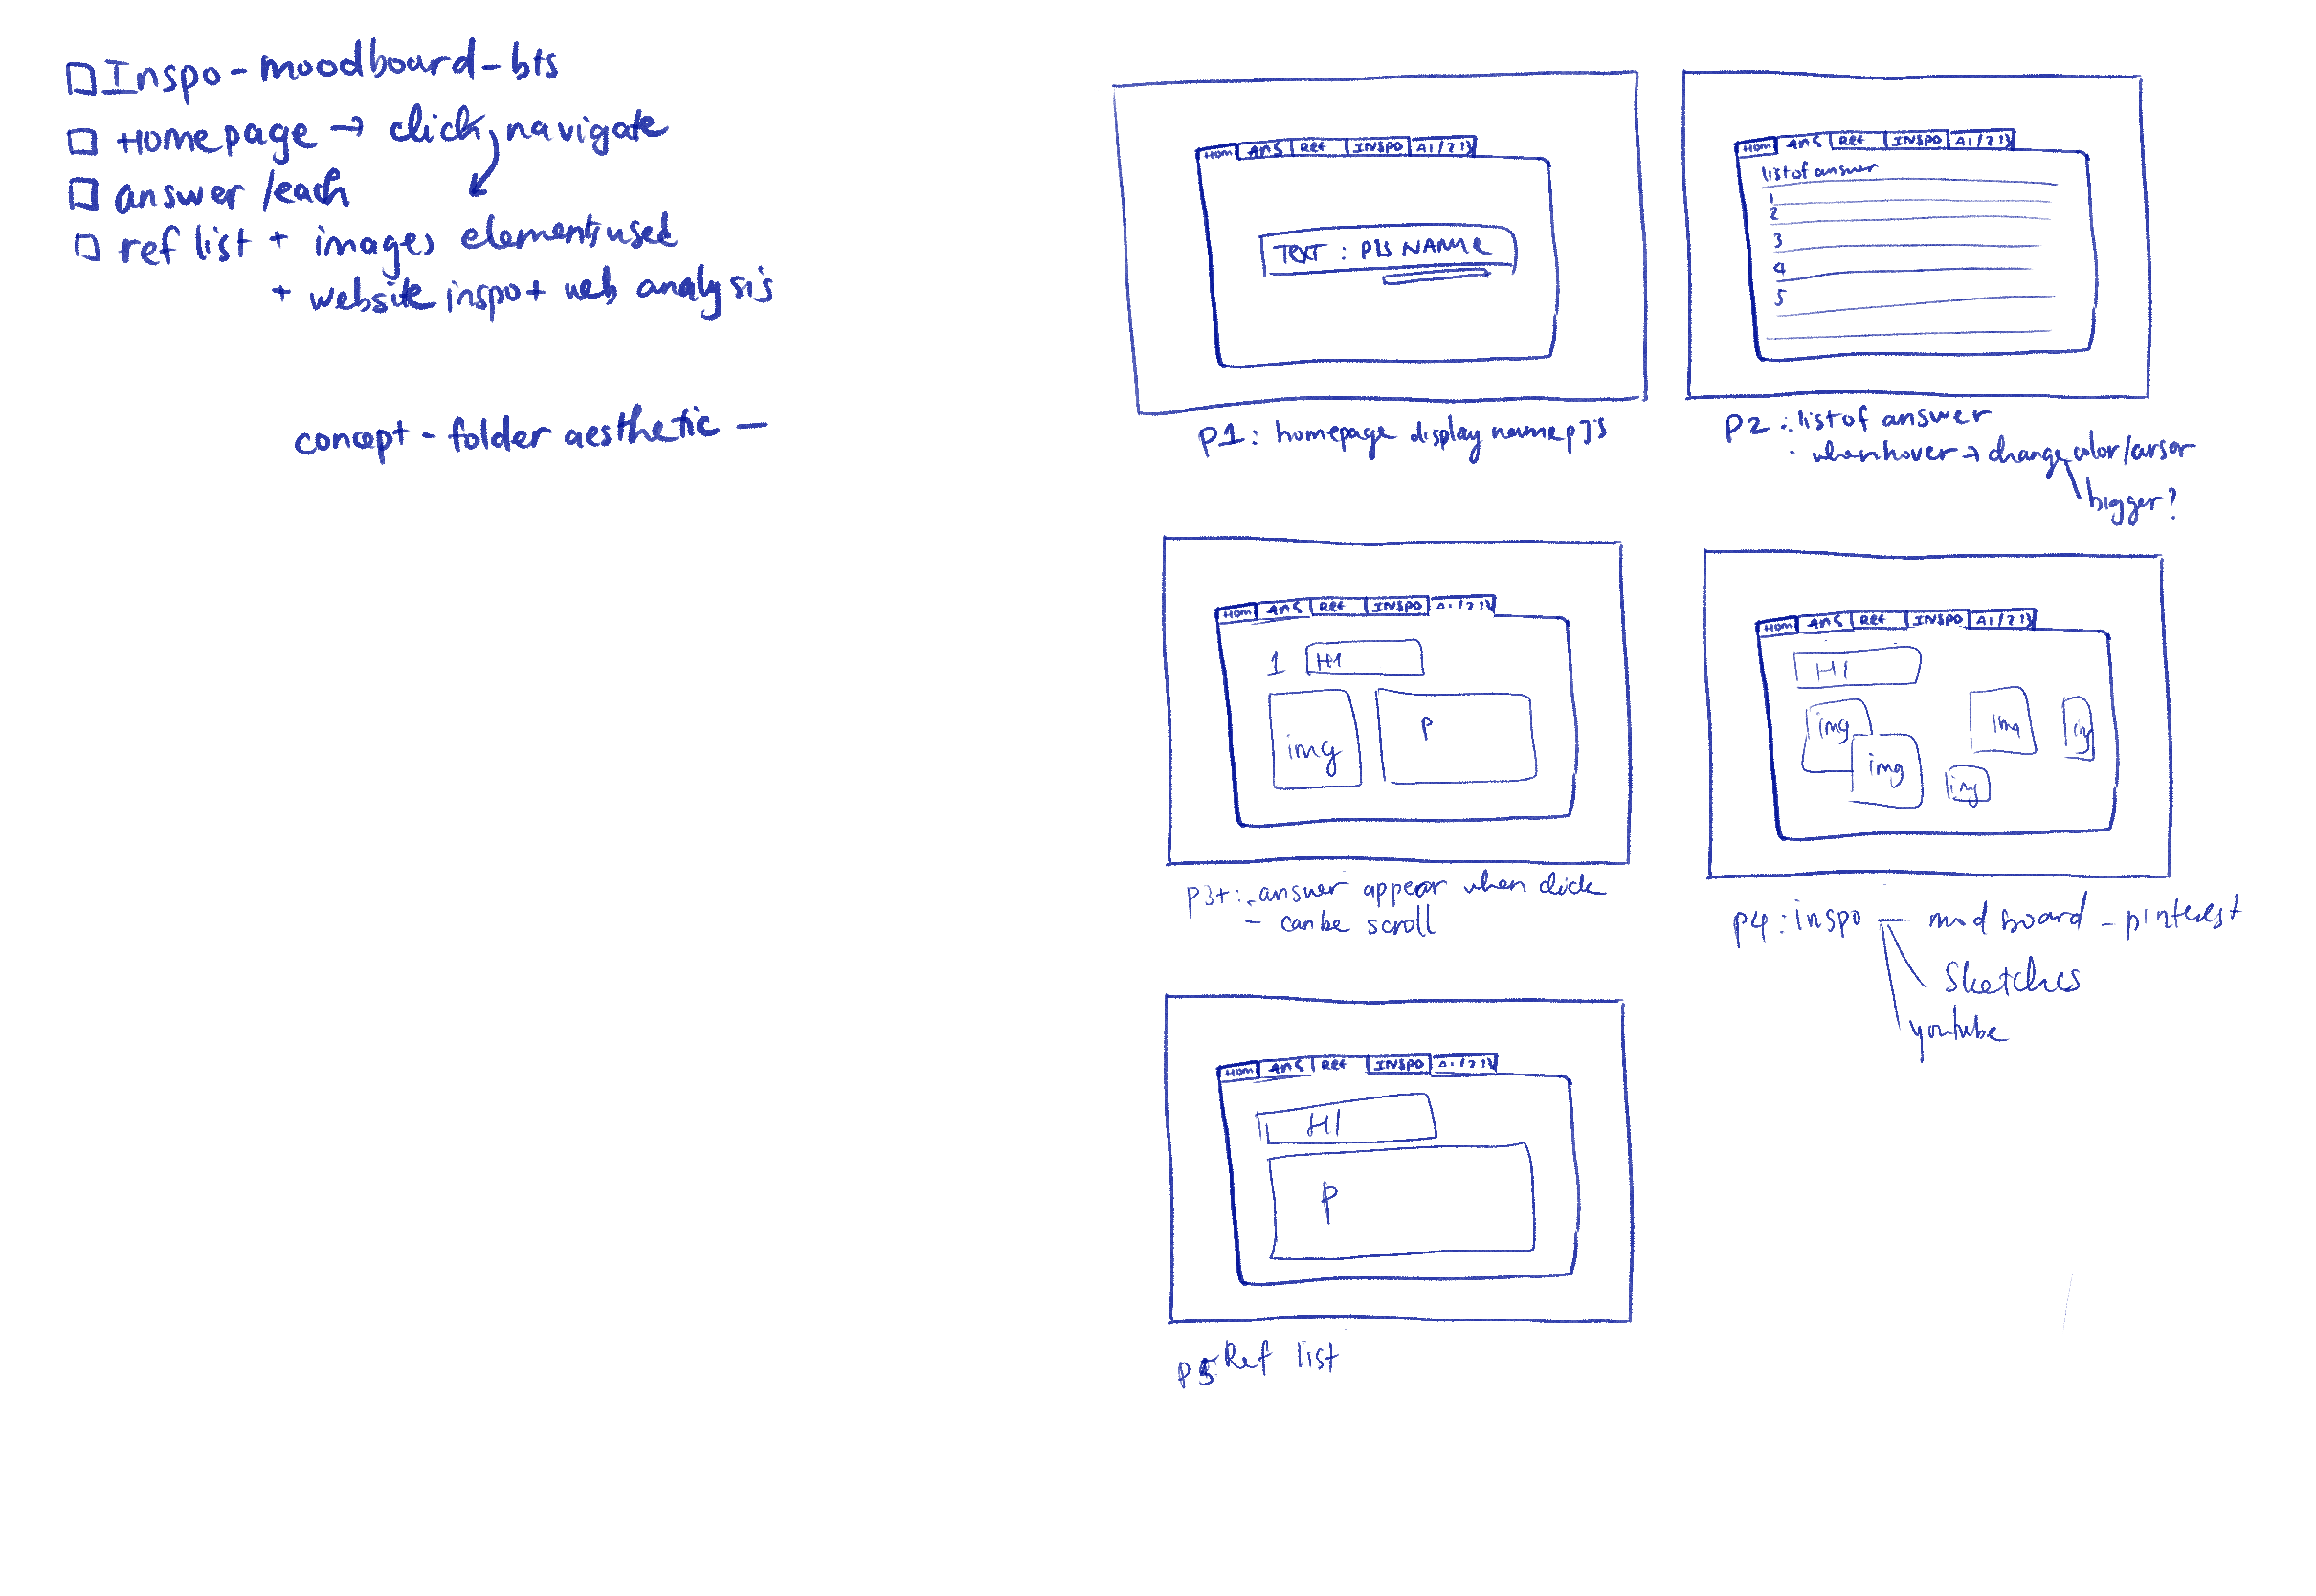 Inspo - moodboard - bts
Homepage → click, navigate
answer /each
ref list + images, elements, used
+ website inspo + web analysis
concept - folder aesthetic -
HOM ANS Ref INSPO A1/213
TEXT : PJS NAME
P1: homepage display name pjs
HOM ANS Ref INSPO A1/213
list of answer
1
2
3
4
5
P2: list of answer
- when hover → change color/cursor
bigger?
HOM ANS Ref INSPO A1/213
1 H1
img P
P3+: - answer appear when click
- can be scroll
HOM ANS Ref INSPO A1/213
H1
img img img
img img
P4: inspo - mod board - pinterest
Sketches
youtube
HOM ANS Ref INSPO A1/213
H1
P
P5 Ref list